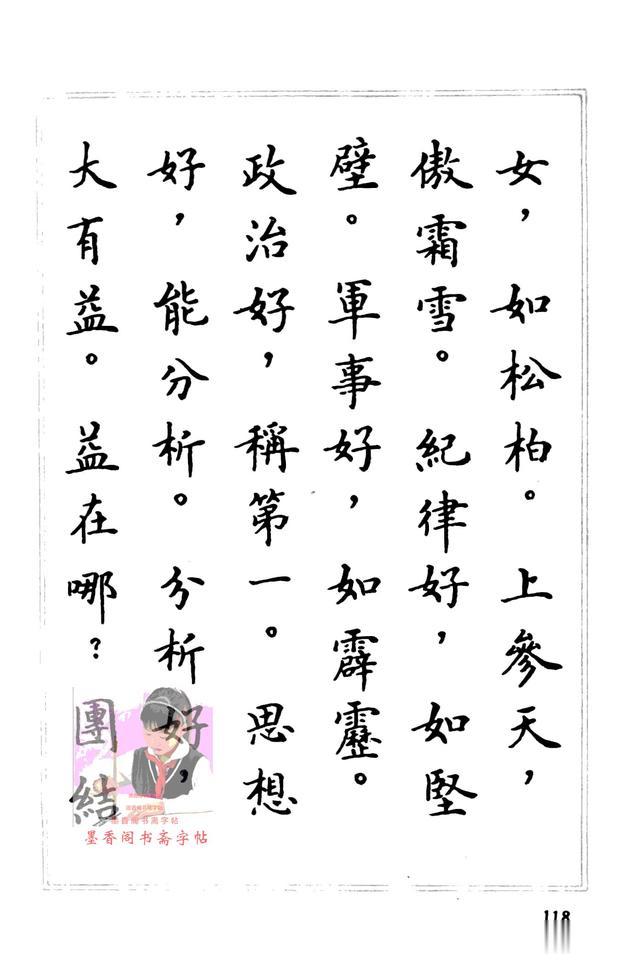 女，如松柏。上參天，
傲霜雪。紀律好，如堅
壁。軍事好，如霹靂。
政治好，稱第一。思想
好，能分析。分析好，
大有益。益在哪？團結
墨香阁书斋字帖
墨香阁书斋字帖
118